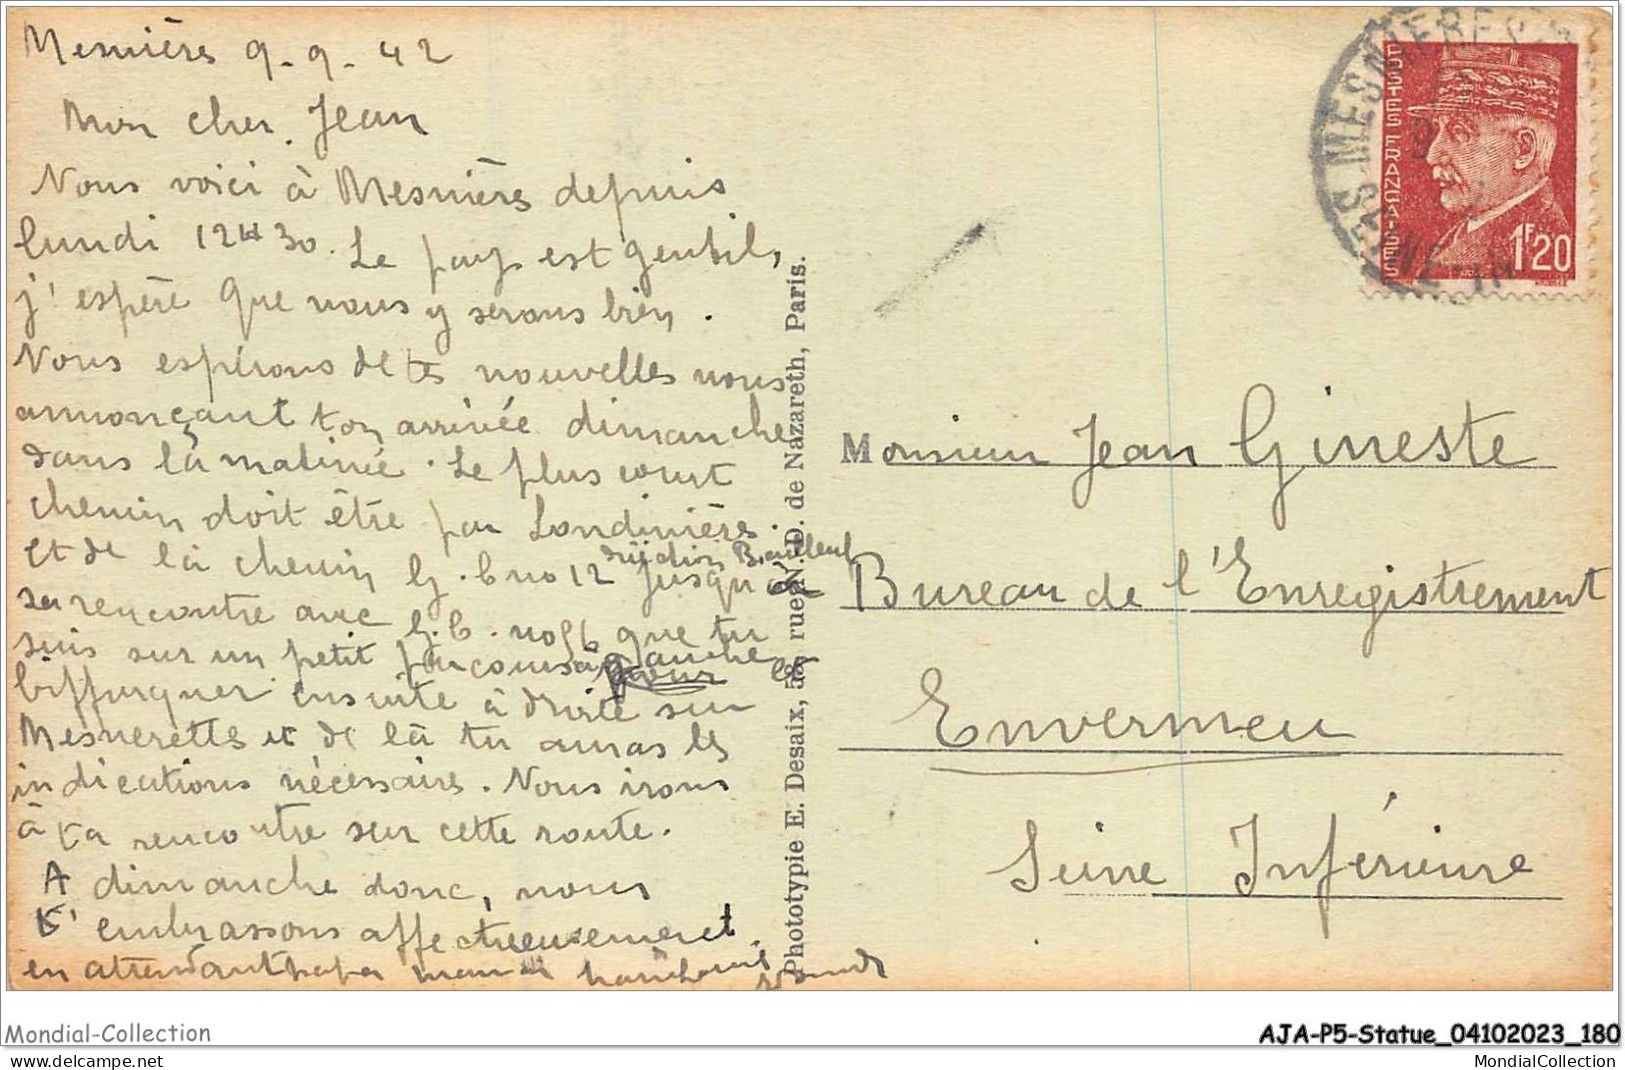 Mesnières 9-9-42
Mon cher Jean
Nous voici à Mesnières depuis
lundi 12H30. Le pays est gentil,
j'espère que nous y serons bien.
Nous espérons de tes nouvelles nous
annonçant ton arrivée dimanche
dans la matinée. Le plus court
chemin doit être par Londinières.
et de là chemin G.C no 12 jusqu'à
sa rencontre avec G.C. no que tu
suis sur un petit parcours à gauche
biffurquer ensuite à droite sur
Mesnerettes et de là tu auras les
indications nécessaires. Nous irons
à ta rencontre sur cette route.
A dimanche donc, nous
t'embrassons affectueusement
en attendant papa maman
Phototypie E. Desaix, rue N.-D. de Nazareth, Paris.
MESNIERES
POSTES FRANÇAISES
1F20
Monsieur Jean Gineste
Bureau de l'Enregistrement
Envermeu
Seine Inférieure
Mondial-Collection
AJA-P5-Statue_04102023_180
delcampe.net
MondialCollection